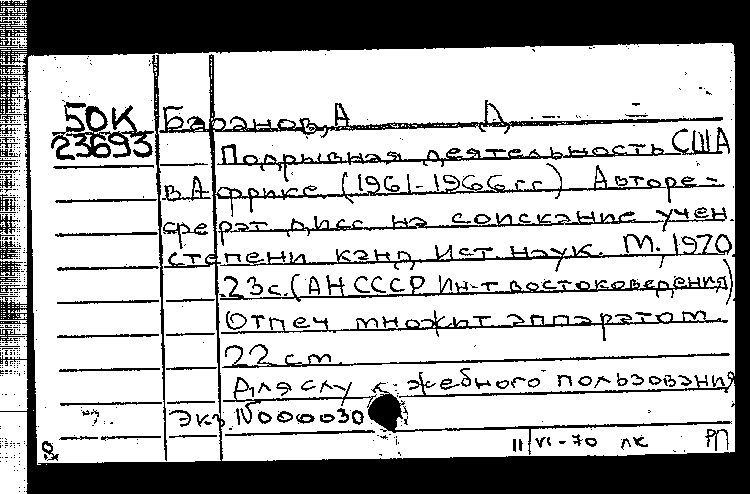 50К Баранов, А Д
23693 Подрывная деятельность США
в Африке (1961-1966 гг.) Авторе-
ферат дисс. на соискание учен
степени канд. ист. наук. М., 1970
23с. (АН СССР Ин-т востоковедения)
Отпеч. множит аппаратом.
22 см.
Для служебного пользования
Экз. N000030
11/VI-70 лк РП